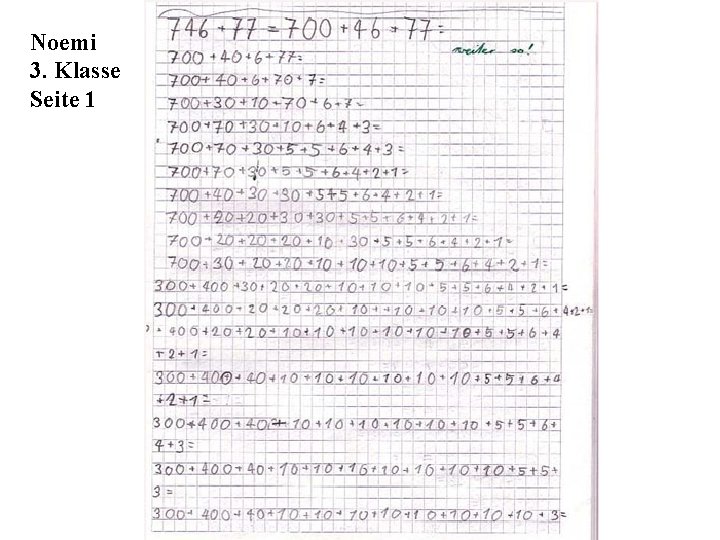 Noemi
3. Klasse
Seite 1
746+77=700+46+77=
weiter so!
700+40+6+77=
700+40+6+70+7=
700+30+10+70+6+7=
700+70+30+10+6+4+3=
700+70+30+5+5+6+4+3=
700+70+30+5+5+6+4+2+1=
700+40+30+30+5+5+6+4+2+1=
700+20+20+30+30+5+5+6+4+2+1=
700+20+20+20+10+30+5+5+6+4+2+1=
700+30+20+20+10+10+10+5+5+6+4+2+1=
300+400+30+20+20+10+10+10+5+5+6+4+2+1=
300+400+20+20+20+10++10+10+10+5+5+6+4+2+1=
+400+20+20+10+10+10+10+10+10+5+5+6+4
+2+1=
300+400+40+10+10+10+10+10+10+5+5+6+4
+2+1=
300+400+40+10+10+10+10+10+10+5+5+6+
4+3=
300+400+40+10+10+10+10+10+10+10+5+5+
3=
300+400+40+10+10+10+10+10+10+10+10+3=